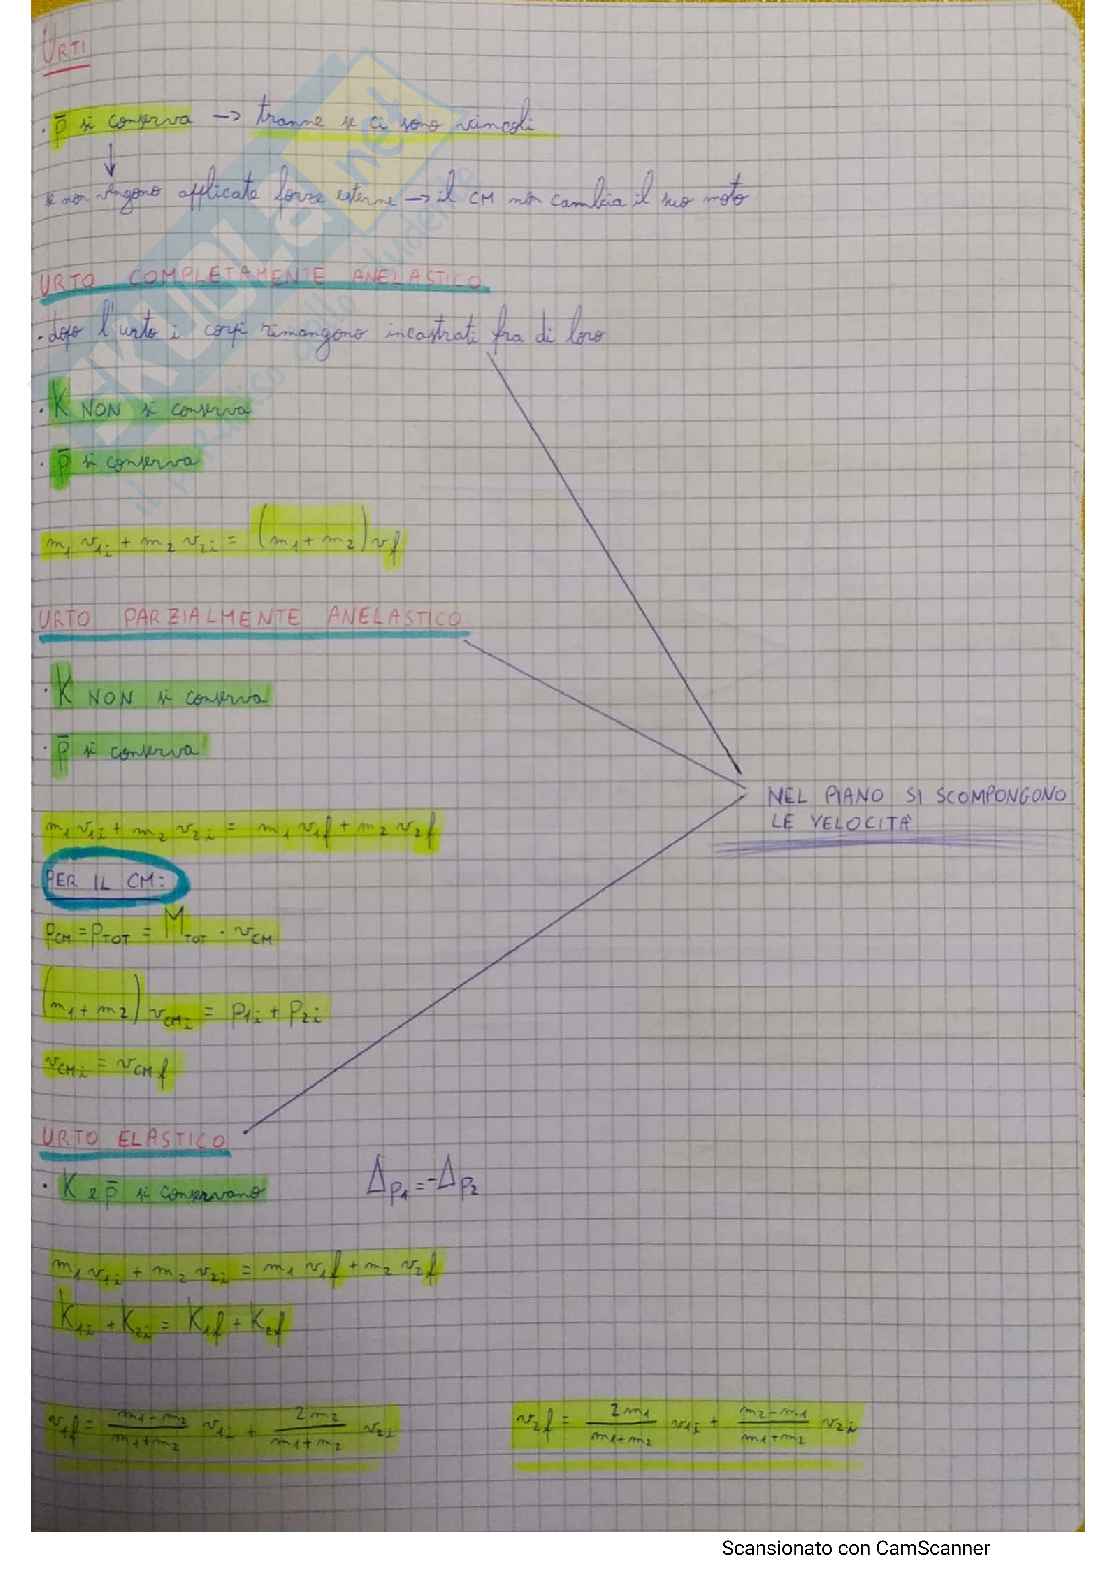 URTI
· p̄ si conserva → tranne se ci sono vincoli
↓
se non vengono applicate forze esterne → il CM non cambia il suo moto
URTO COMPLETAMENTE ANELASTICO
· dopo l'urto i corpi rimangono incastrati fra di loro
· K NON si conserva
· p̄ si conserva
m₁ v₁i + m₂ v₂i = (m₁ + m₂) vf
URTO PARZIALMENTE ANELASTICO
· K NON si conserva
· p̄ si conserva
NEL PIANO SI SCOMPONGONO
LE VELOCITÀ
m₁ v₁i + m₂ v₂i = m₁ v₁f + m₂ v₂f
PER IL CM:
pCM = pTOT = MTOT · vCM
(m₁ + m₂) vCMi = p₁i + p₂i
vCMi = vCMf
URTO ELASTICO
· K e p̄ si conservano Δp₁ = -Δp₂
m₁ v₁i + m₂ v₂i = m₁ v₁f + m₂ v₂f
K₁i + K₂i = K₁f + K₂f
v₁f = (m₁ - m₂)/(m₁ + m₂) v₁i + 2m₂/(m₁ + m₂) v₂i v₂f = 2m₁/(m₁ + m₂) v₁i + (m₂ - m₁)/(m₁ + m₂) v₂i
SKUOLA.net
Scansionato con CamScanner